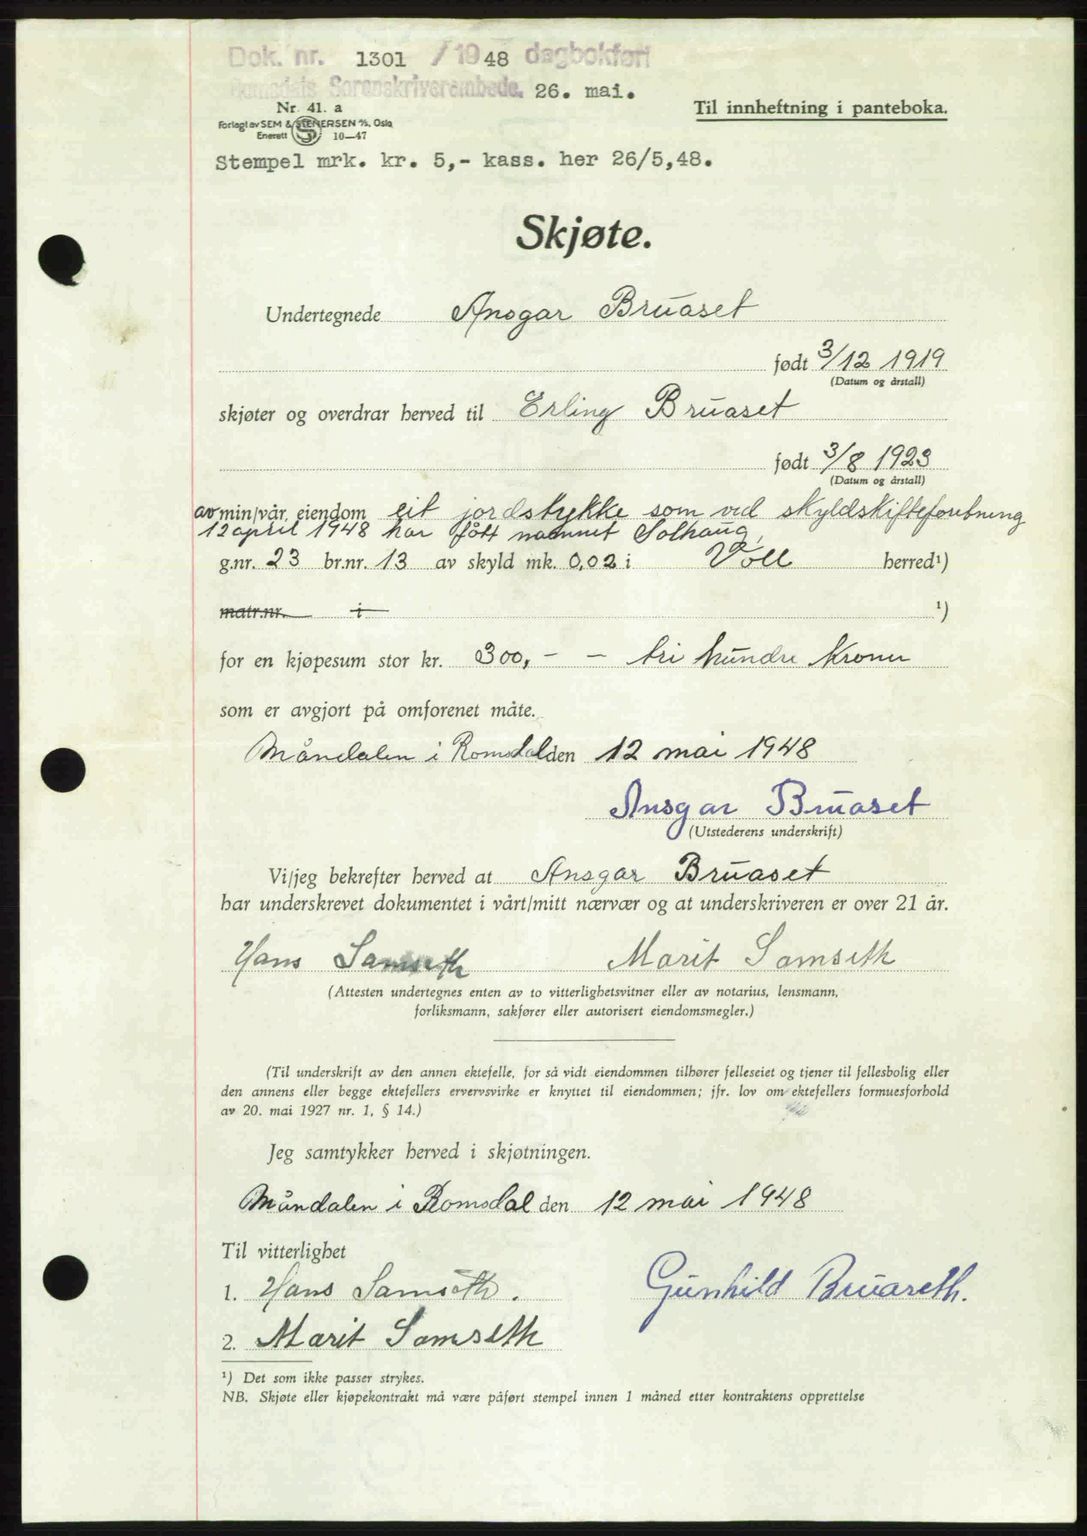 Dok. nr. 1301 / 1948 dagbokført
Romsdals Sorenskriverembede. 26. mai.
Nr. 41. a
Til innheftning i panteboka.
Forlagt av SEM & STENERSEN A/S, Oslo
Enerett 10—47
Stempel mrk. kr. 5,- kass. her 26/5,48.
Skjøte.
Undertegnede Ansgar Bruaset
født 3/12 1919
(Datum og årstall)
skjøter og overdrar herved til Erling Bruaset
født 3/8 1923
(Datum og årstall)
av min/vår eiendom eit jordstykke som ved skyldskifteforretning
12 april 1948 har fått namnet Solhaug,
g.nr. 23 br.nr. 13 av skyld mk. 0,02 i Voll herred¹)
matr.nr. i ¹)
for en kjøpesum stor kr. 300,- - tri hundre kroner
som er avgjort på omforenet måte.
Måndalen i Romsdal den 12 mai 1948
Ansgar Bruaset
(Utstederens underskrift)
Vi/jeg bekrefter herved at Ansgar Bruaset
har underskrevet dokumentet i vårt/mitt nærvær og at underskriveren er over 21 år.
Hans Samseth Marit Samseth
(Attesten undertegnes enten av to vitterlighetsvitner eller av notarius, lensmann,
forliksmann, sakfører eller autorisert eiendomsmegler.)
(Til underskrift av den annen ektefelle, for så vidt eiendommen tilhører felleseiet og tjener til fellesbolig eller
den annens eller begge ektefellers ervervsvirke er knyttet til eiendommen; jfr. lov om ektefellers formuesforhold
av 20. mai 1927 nr. 1, § 14.)
Jeg samtykker herved i skjøtningen.
Måndalen i Romsdal den 12 mai 1948
Til vitterlighet
1. Hans Samseth. Gunhild Bruaseth.
2. Marit Samseth
¹) Det som ikke passer strykes.
NB. Skjøte eller kjøpekontrakt må være påført stempel innen 1 måned etter kontraktens opprettelse